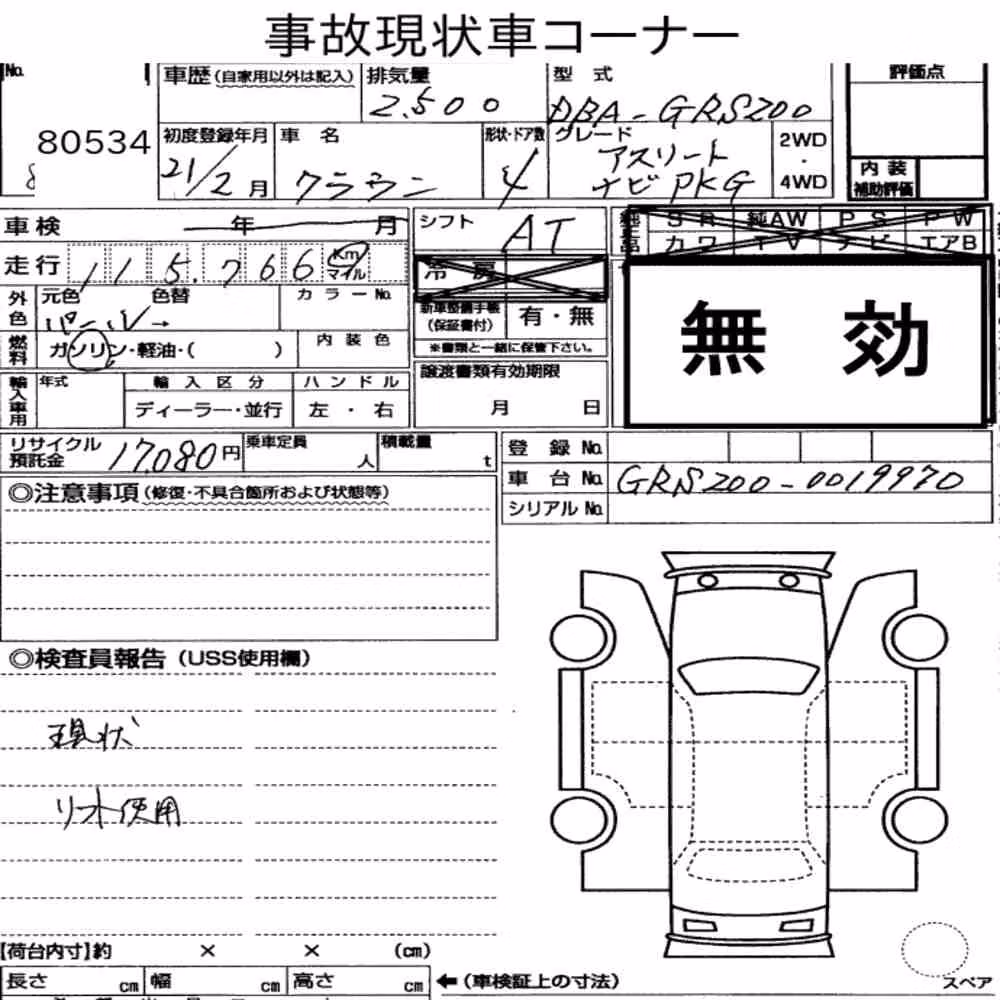 事故現状車コーナー
No.
80534
車歴(自家用以外は記入)
排気量
2.500
型 式
DBA-GRS200
評価点
初度登録年月
21/2月
車 名
クラウン
形状・ドア数
4
グレード
アスリート
ナビPKG
2WD
・
4WD
内 装
補助評価
車検 年 月
シフト
AT
純正 SR 純AW PS PW
カワ TV ナビ エアB
走行 115.766 Km マイル
冷 房
外色
元色 色替
パール→
カラーNo.
新車整備手帳
(保証書付)
有・無
※書類と一緒に保管下さい。
無 効
燃料
ガソリン・軽油・( )
内装色
輸入車用
年式
輸入区分
ディーラー・並行
ハンドル
左・右
譲渡書類有効期限
月 日
リサイクル
預託金
17,080円
乗車定員
人
積載量
t
登 録 No.
車 台 No. GRS200-0019970
シリアル No.
◎注意事項(修復・不具合箇所および状態等)
◎検査員報告(USS使用欄)
現状
リオ使用
【荷台内寸】約 × × (cm)
長さ cm 幅 cm 高さ cm
←(車検証上の寸法)
スペア